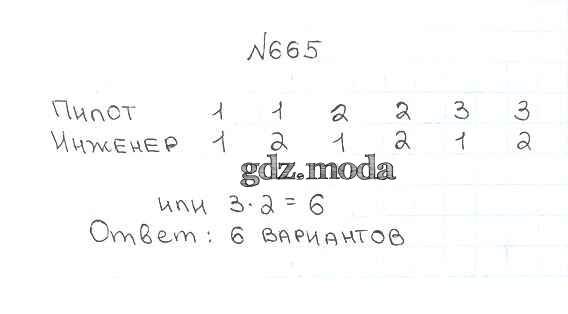 №665
Пилот 1 1 2 2 3 3
Инженер 1 2 1 2 1 2
gdz.moda
или 3·2=6
Ответ: 6 вариантов